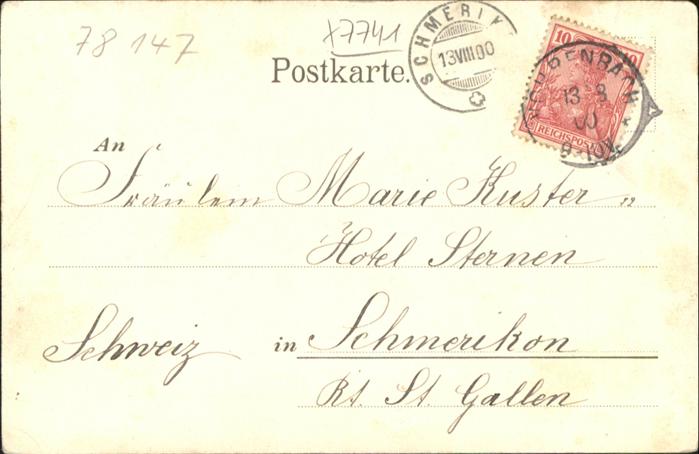 78 147
x7741
SCHMERIK
13 VIII 00
10 10
REICHSPOST
13 8
00
9-10V
Postkarte.
An
Fräulein Marie Kuster
Hotel Sternen
Schweiz in Schmerikon
Kt. St. Gallen